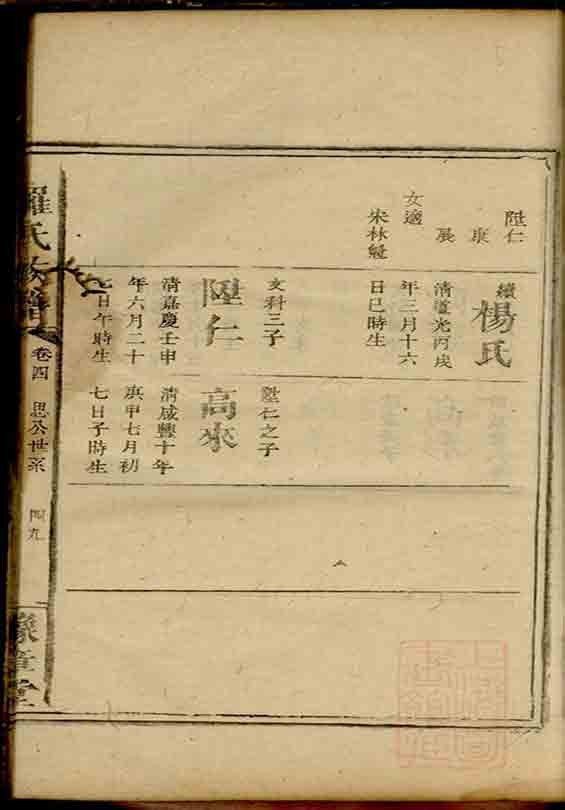 陞仁
康
展
女適
朱林
續
楊氏
清道光丙戌
年三月十六
日巳時生
文科三子
陞仁
清嘉慶壬申
年六月二十
七日午時生
陞仁之子
高來
清咸豐十年
庚申七月初
七日子時生
羅氏族譜
卷四
思公世系
四九
豫章堂